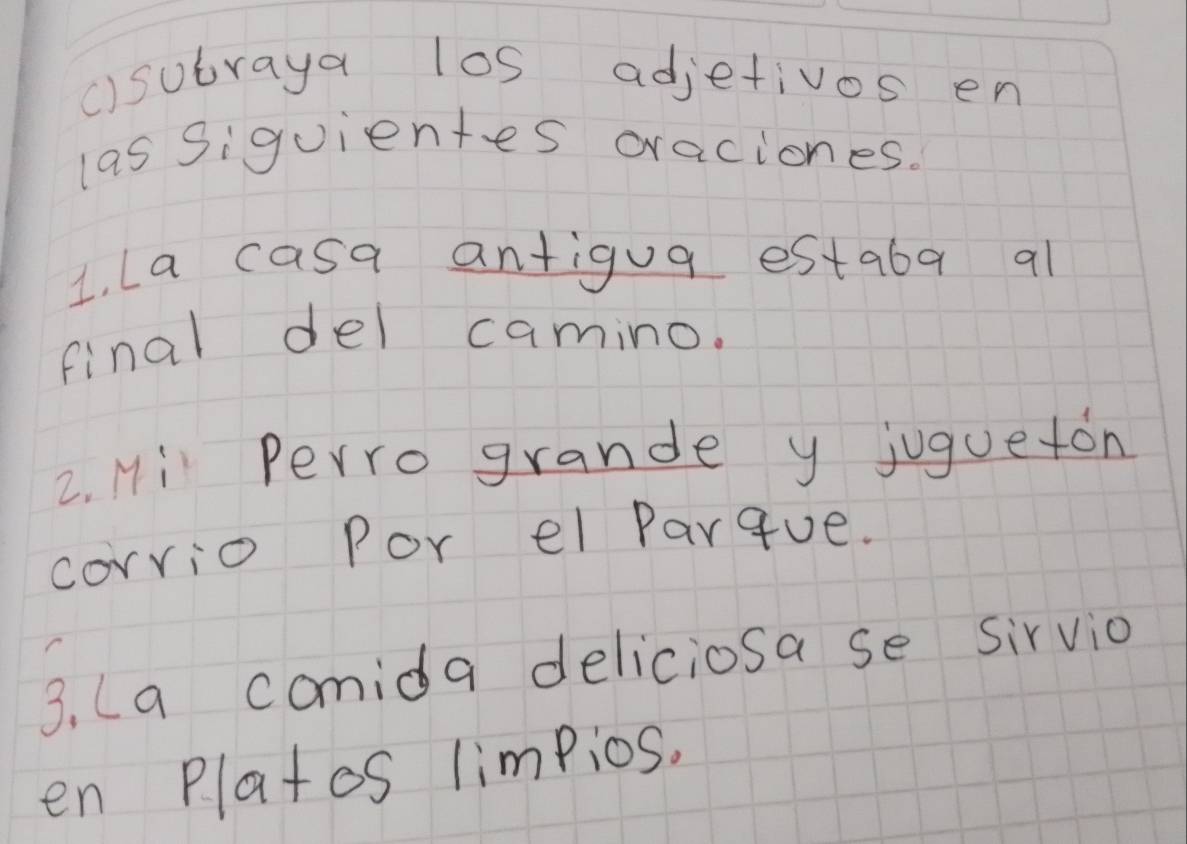 c) subraya los adjetivos en
las Siguientes oraciones.
1. La casa antigua estaba al
final del camino.
2. Mi Perro grande y juguetón
corrio Por el Parque.
3. La comida deliciosa se sirvio
en Platos limPios.